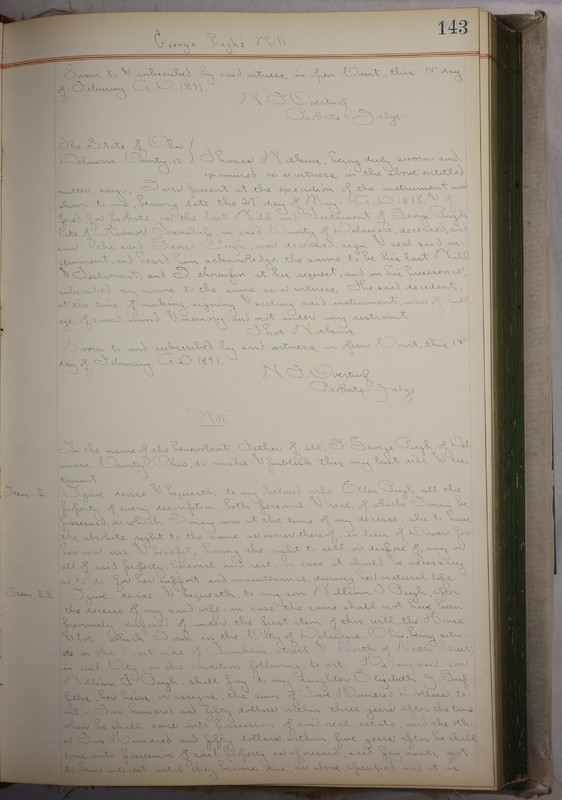 143
George Pugh's Will
Sworn to & subscribed by said witness in open Court, this 14" day
of February A.D. 1891.
N F Overturf
Probate Judge.
The State of Ohio }
Delaware County, ss } Thomas Nelsine, being duly sworn and
examined as a witness in the above entitled
matter, says, I was present at the execution of the instrument now
shown to me, bearing date the 21st day of May, A.D. 1878 & of-
fered for probate as the last Will and Testament of George Pugh
late of Radnor Township, in said County of Delaware, deceased, and
saw the said George Pugh, now deceased sign & seal said in-
strument, and heard him acknowledge the same to be his last Will
& Testament, and I thereafter at his request, and in his presence,
subscribed my name to the same as a witness. The said decedent,
at the time of making, signing & sealing said instrument, was of full
age, of sound mind & memory and not under any restraint.
Thos Nelsine
Sworn to and subscribed by said witness in open Court, this 14"
day of February, A.D. 1891.
N F Overturf
Probate Judge.
"Will"
In the name of the benevolent Father of all, I George Pugh, of Del-
aware County, Ohio, do make & publish this my last will & tes-
tament.
Item I I give, devise & bequeath to my beloved wife Ellen Pugh all the
property of every description, both personal & real, of which I may be
possessed, or which I may own at the time of my decease, she to have
the absolute right to the same as owner thereof, in lieu of dower for
her own use & benefit, having the right to sell or dispose of, any or
all of said property, personal and real, in case it should be necessary
so to do, for her support and maintenance, during her natural life
Item II I give, devise & bequeath, to my son William I Pugh, after
the decease of my said wife, in case the same shall not have been
previously disposed of under the first item of this will, the House
& lot which I own in the City of Delaware, Ohio, being situ-
ate on the East side of Franklin Street & North of North Street
in said City, on the condition following, to wit: He my said son
William I. Pugh, shall pay to my daughter Elizabeth J. Grif-
fiths, her heirs or assigns, the sum of Five Hundred Dollars, to
wit: Two hundred and fifty dollars within three years after the time
when he shall come into possession of said real estate, and the oth-
er Two Hundred and fifty dollars within five years after he shall
come into possession of said property as aforesaid, said payments not
to bear interest until they become due, as above specified, and it is